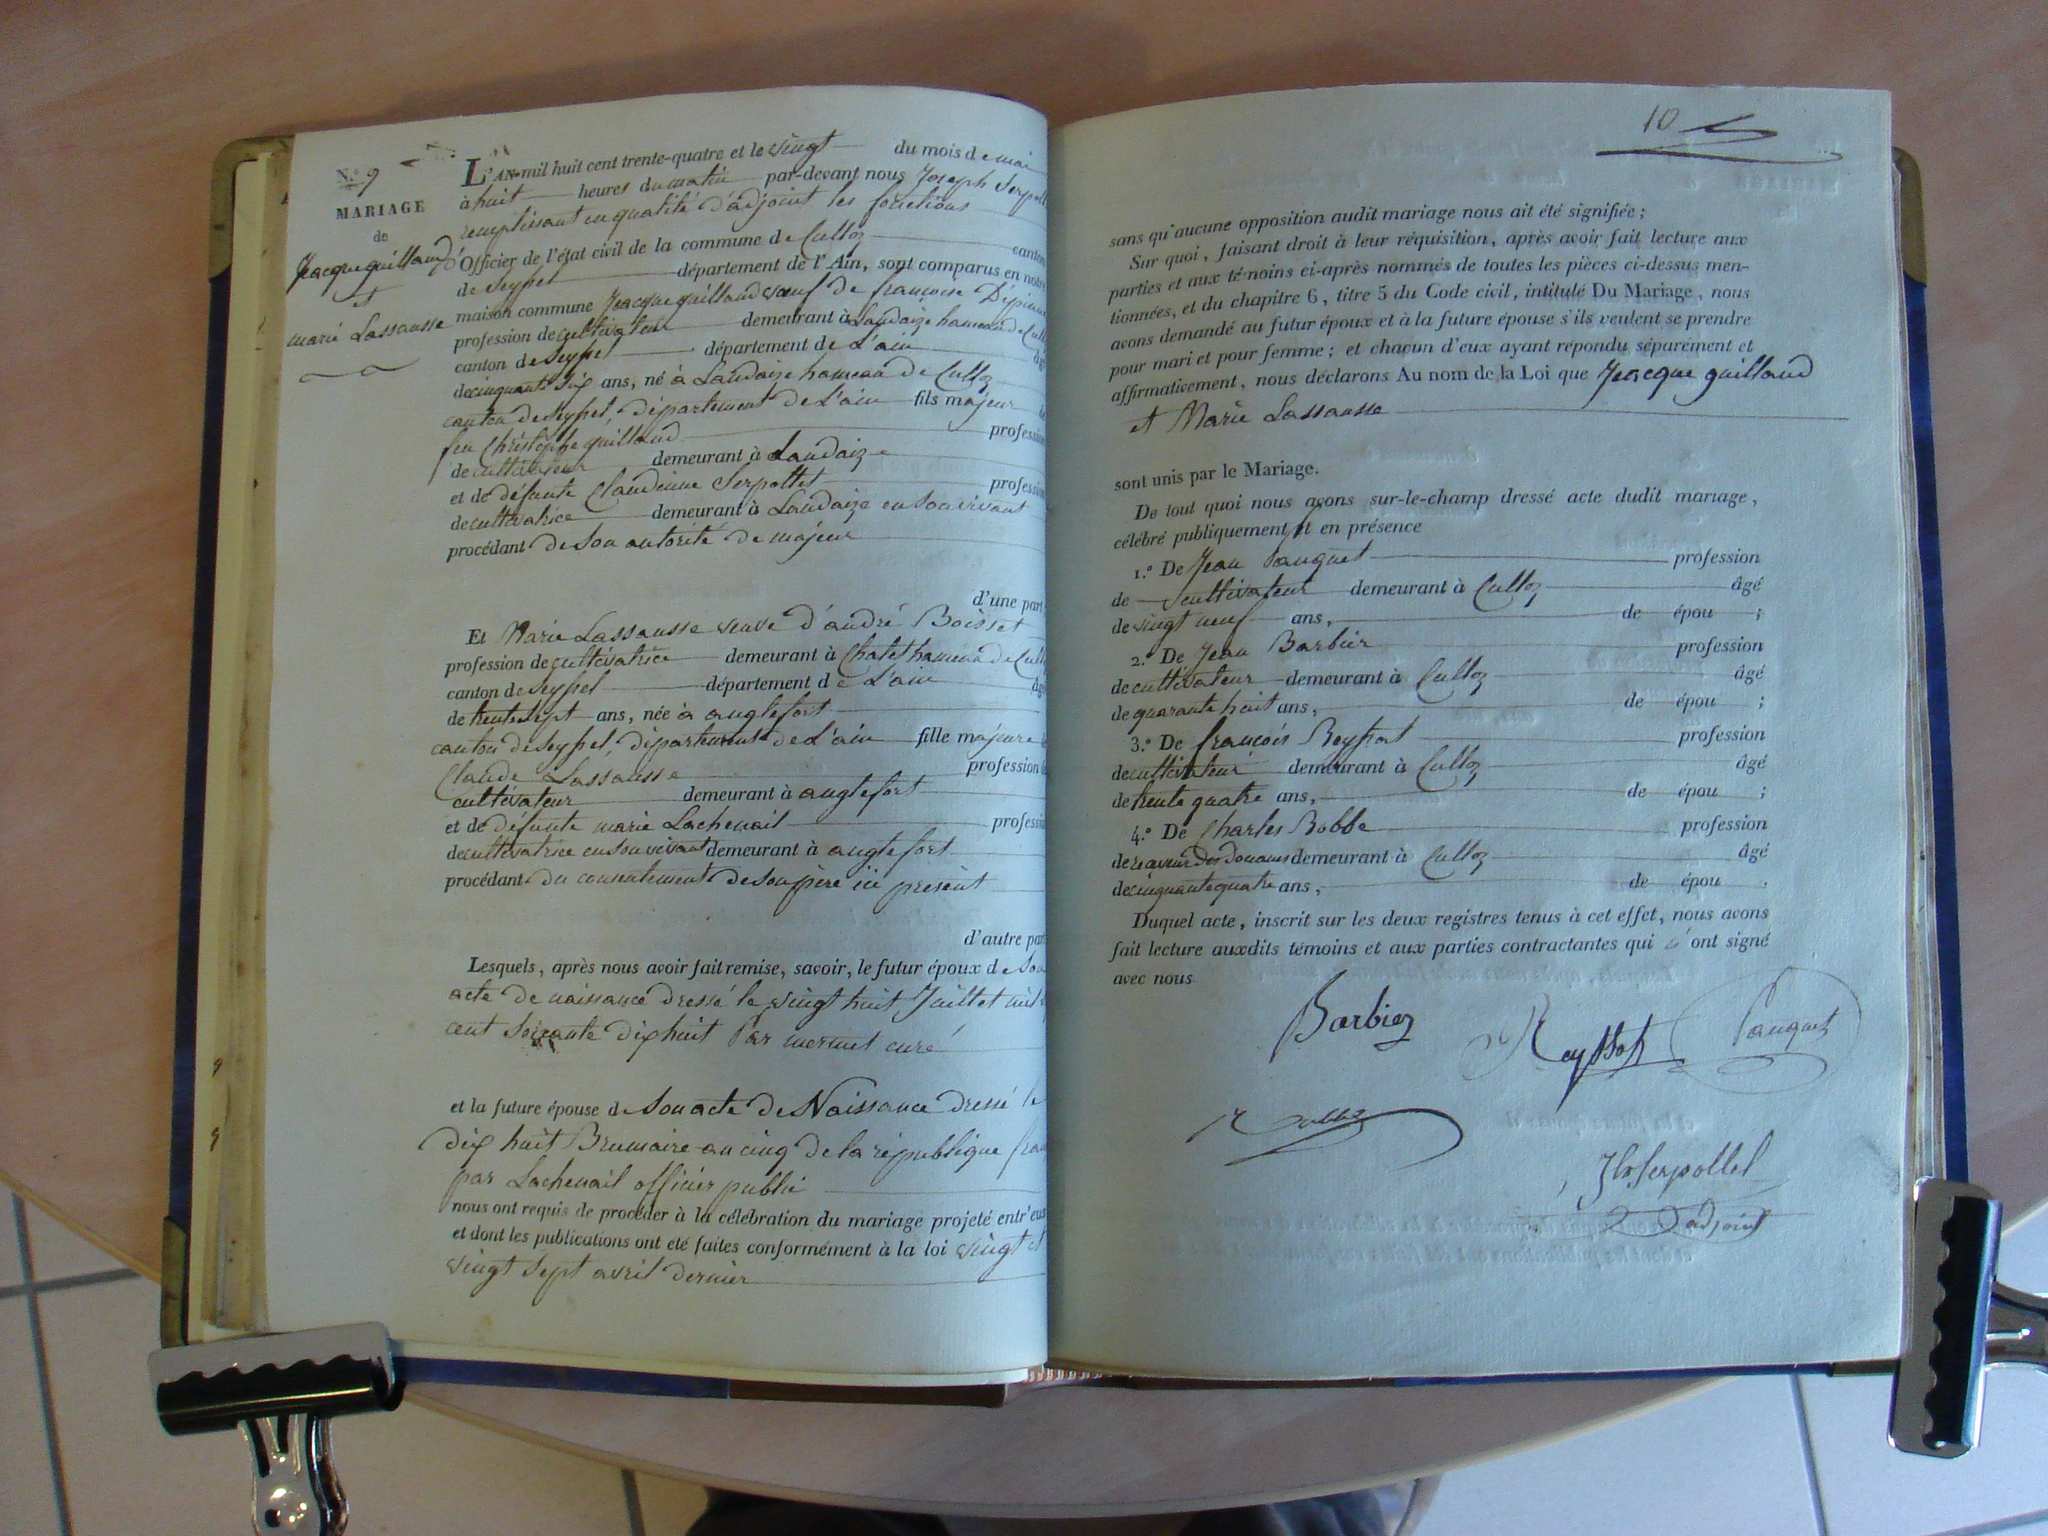 N.o 9
MARIAGE
de
Jeacque guilland
et
marie Lassausse
L'AN mil huit cent trente-quatre et le vingt du mois de mai
à huit heures du matin par-devant nous Joseph Serpoll
remplissant en qualité d'adjoint les fonctions
d'Officier de l'état civil de la commune de Culloz canton
de Seyssel département de l'Ain, sont comparus en notre
maison commune Jeacque guilland veuf de françoise
profession de cultivateur demeurant à Landaize hameau de Cull
canton de Seyssel département de L'ain âgé
de cinquante six ans, né à Landaize hameau de Culloz
canton de Seyssel, département de L'ain fils majeur de
feu Christophe guilland profession
de cultivateur demeurant à Landaize
et de défunte Claudinne Serpollet profession
de cultivatrice demeurant à Landaize en son vivant
procédant de son autorité de majeur
d'une part
Et Marie Lassausse veuve d'andré Boisset
profession de cultivatrice demeurant à Chatel hameau de Cull
canton de Seyssel département de L'ain âgé
de trente sept ans, née à anglefort
canton de Seyssel, département de L'ain fille majeure de
Claude Lassausse profession de
cultivateur demeurant à anglefort
et de défunte marie Lachenail profession
de cultivatrice en son vivant demeurant à anglefort
procédant du consentement de son père ici présent
d'autre part
Lesquels, après nous avoir fait remise, savoir, le futur époux de son
acte de naissance dressé le vingt huit Juillet mil s
cent soixante dix huit Par mermet curé
et la future épouse de son acte de Naissance dressé le
dix huit Brumaire an cinq de la république fran
par Lachenail officier public
nous ont requis de procéder à la célébration du mariage projeté entr'eux
et dont les publications ont été faites conformément à la loi vingt et
vingt sept avril dernier
10
sans qu'aucune opposition audit mariage nous ait été signifiée ;
Sur quoi, faisant droit à leur réquisition, après avoir fait lecture aux
parties et aux témoins ci-après nommés de toutes les pièces ci-dessus men-
tionnées, et du chapitre 6, titre 5 du Code civil, intitulé Du Mariage, nous
avons demandé au futur époux et à la future épouse s'ils veulent se prendre
pour mari et pour femme ; et chacun d'eux ayant répondu séparément et
affirmativement, nous déclarons Au nom de la Loi que Jeacque guilland
et Marie Lassausse
sont unis par le Mariage.
De tout quoi nous avons sur-le-champ dressé acte dudit mariage,
célébré publiquement et en présence
1.o De Jean Pauquet profession
de cultivateur demeurant à Culloz âgé
de vingt neuf ans, de épou ;
2.o De Jean Barbier profession
de cultivateur demeurant à Culloz âgé
de quarante huit ans, de épou ;
3.o De françois Reyssot profession
de cultivateur demeurant à Culloz âgé
de trente quatre ans, de épou ;
4.o De Charles Robbe profession
de receveur des Douanes demeurant à Culloz âgé
de cinquante quatre ans, de épou .
Duquel acte, inscrit sur les deux registres tenus à cet effet, nous avons
fait lecture auxdits témoins et aux parties contractantes qui ont signé
avec nous
Barbier
Reyssot
Pauquet
Jh Serpollet
adjoint